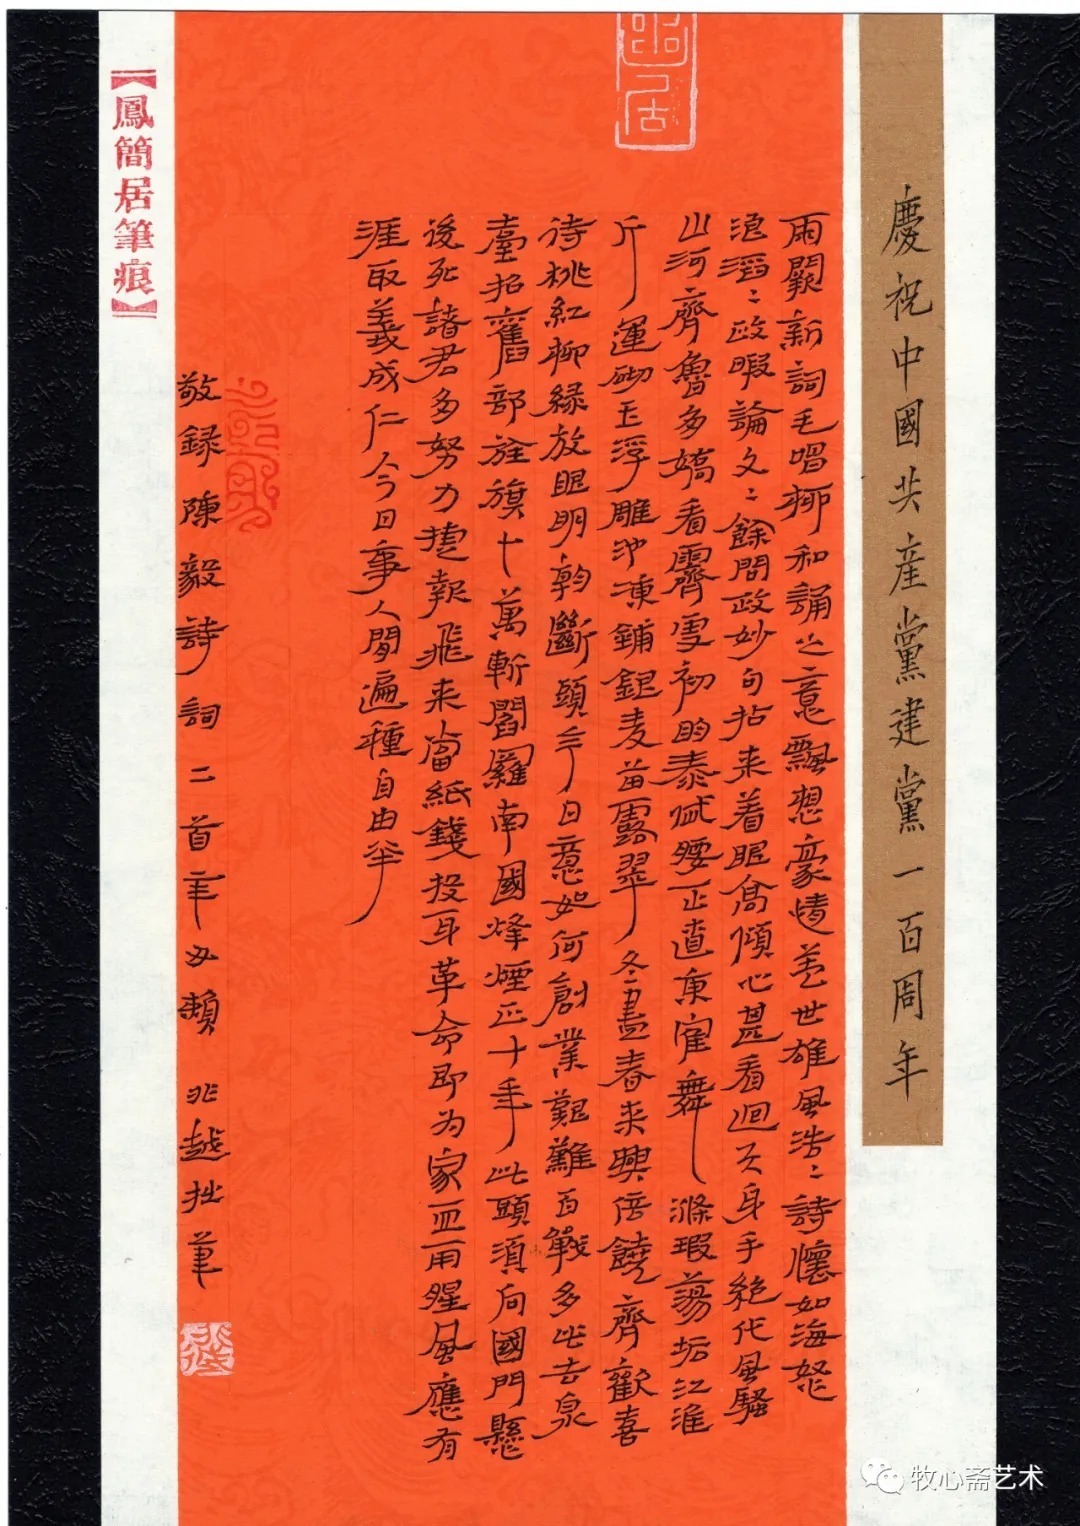 慶祝中國共產黨建黨一百周年
兩闋新詞毛唱柳和誦之意飄想豪情蓋世雄風浩〻詩懷如海怒
浪滔〻政暇論文〻餘問政妙句拈来着眼高傾心甚看迴天身手絕代風騷
山河齊魯多嬌看霽雪初晴泰岱腰正遍東宙舞滌瑕蕩垢江淮
斤運砌玉浮雕池凍鋪銀麦苗露翠冬盡春来興倍饒齊歡喜
待桃紅柳綠放眼明朝斷頭今日意如何創業艱難百戰多此去泉
臺招舊部旌旗十萬斬閻羅南國烽煙正十年此頭須向國門懸
後死諸君多努力捷報飛来當紙錢投身革命即为家血雨腥風應有
涯取義成仁今日事人間遍種自由花
敬録陳毅詩詞二首辛丑 越拙筆
【鳳簡居筆痕】
居
牧心斋艺术